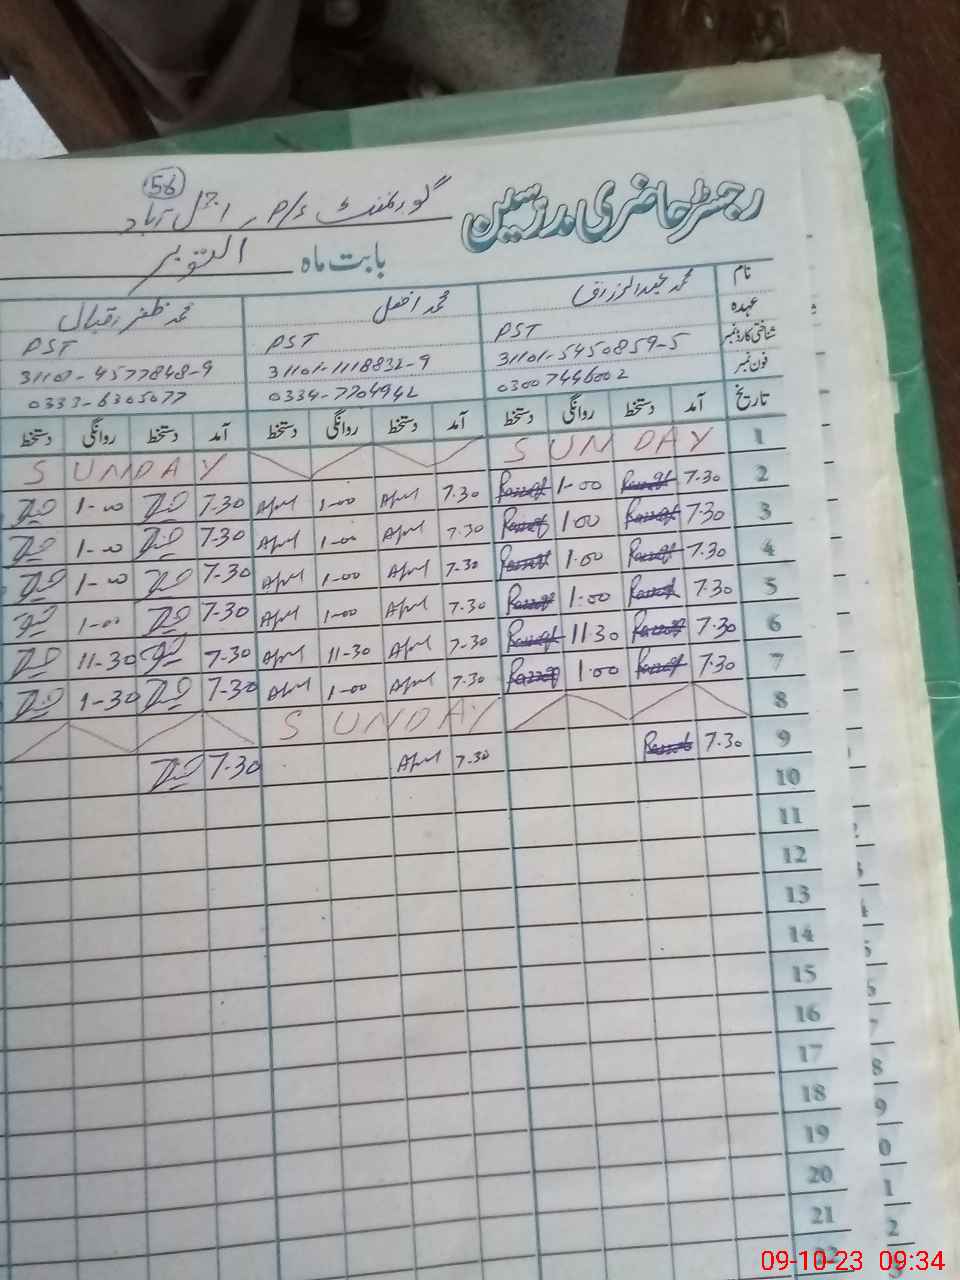 56
رجسٹر حاضری مدرسین گورنمنٹ P/S
بابت ماہ اکتوبر
نام محمد عبدالرزاق محمد افضل محمد ظفر اقبال
عہدہ PST PST PST
شناختی کارڈ نمبر 31101-5450859-5 31101-1118832-9 31101-4577848-9
فون نمبر 03007446002 0334-7704942 0333-6305077
تاریخ آمد دستخط روانگی دستخط آمد دستخط روانگی دستخط آمد دستخط روانگی دستخط
1 SUNDAY SUNDAY
2 7.30 Razzaq 1.00 Razzaq 7.30 Afzal 1.00 Afzal 7.30 1.00
3 7.30 Razzaq 1.00 Razzaq 7.30 Afzal 1.00 Afzal 7.30 1.00
4 7.30 Razzaq 1.00 Razzaq 7.30 Afzal 1.00 Afzal 7.30 1.00
5 7.30 Razzaq 1.00 Razzaq 7.30 Afzal 1.00 Afzal 7.30 1.00
6 7.30 Razzaq 11.30 Razzaq 7.30 Afzal 11-30 Afzal 7.30 11-30
7 7.30 Razzaq 1.00 Razzaq 7.30 Afzal 1.00 Afzal 7.30 1-30
8 SUNDAY
9 7.30 Razzaq 7.30 Afzal 7.30
10
11
12
13
14
15
16
17
18
19
20
21
22
09-10-23 09:34